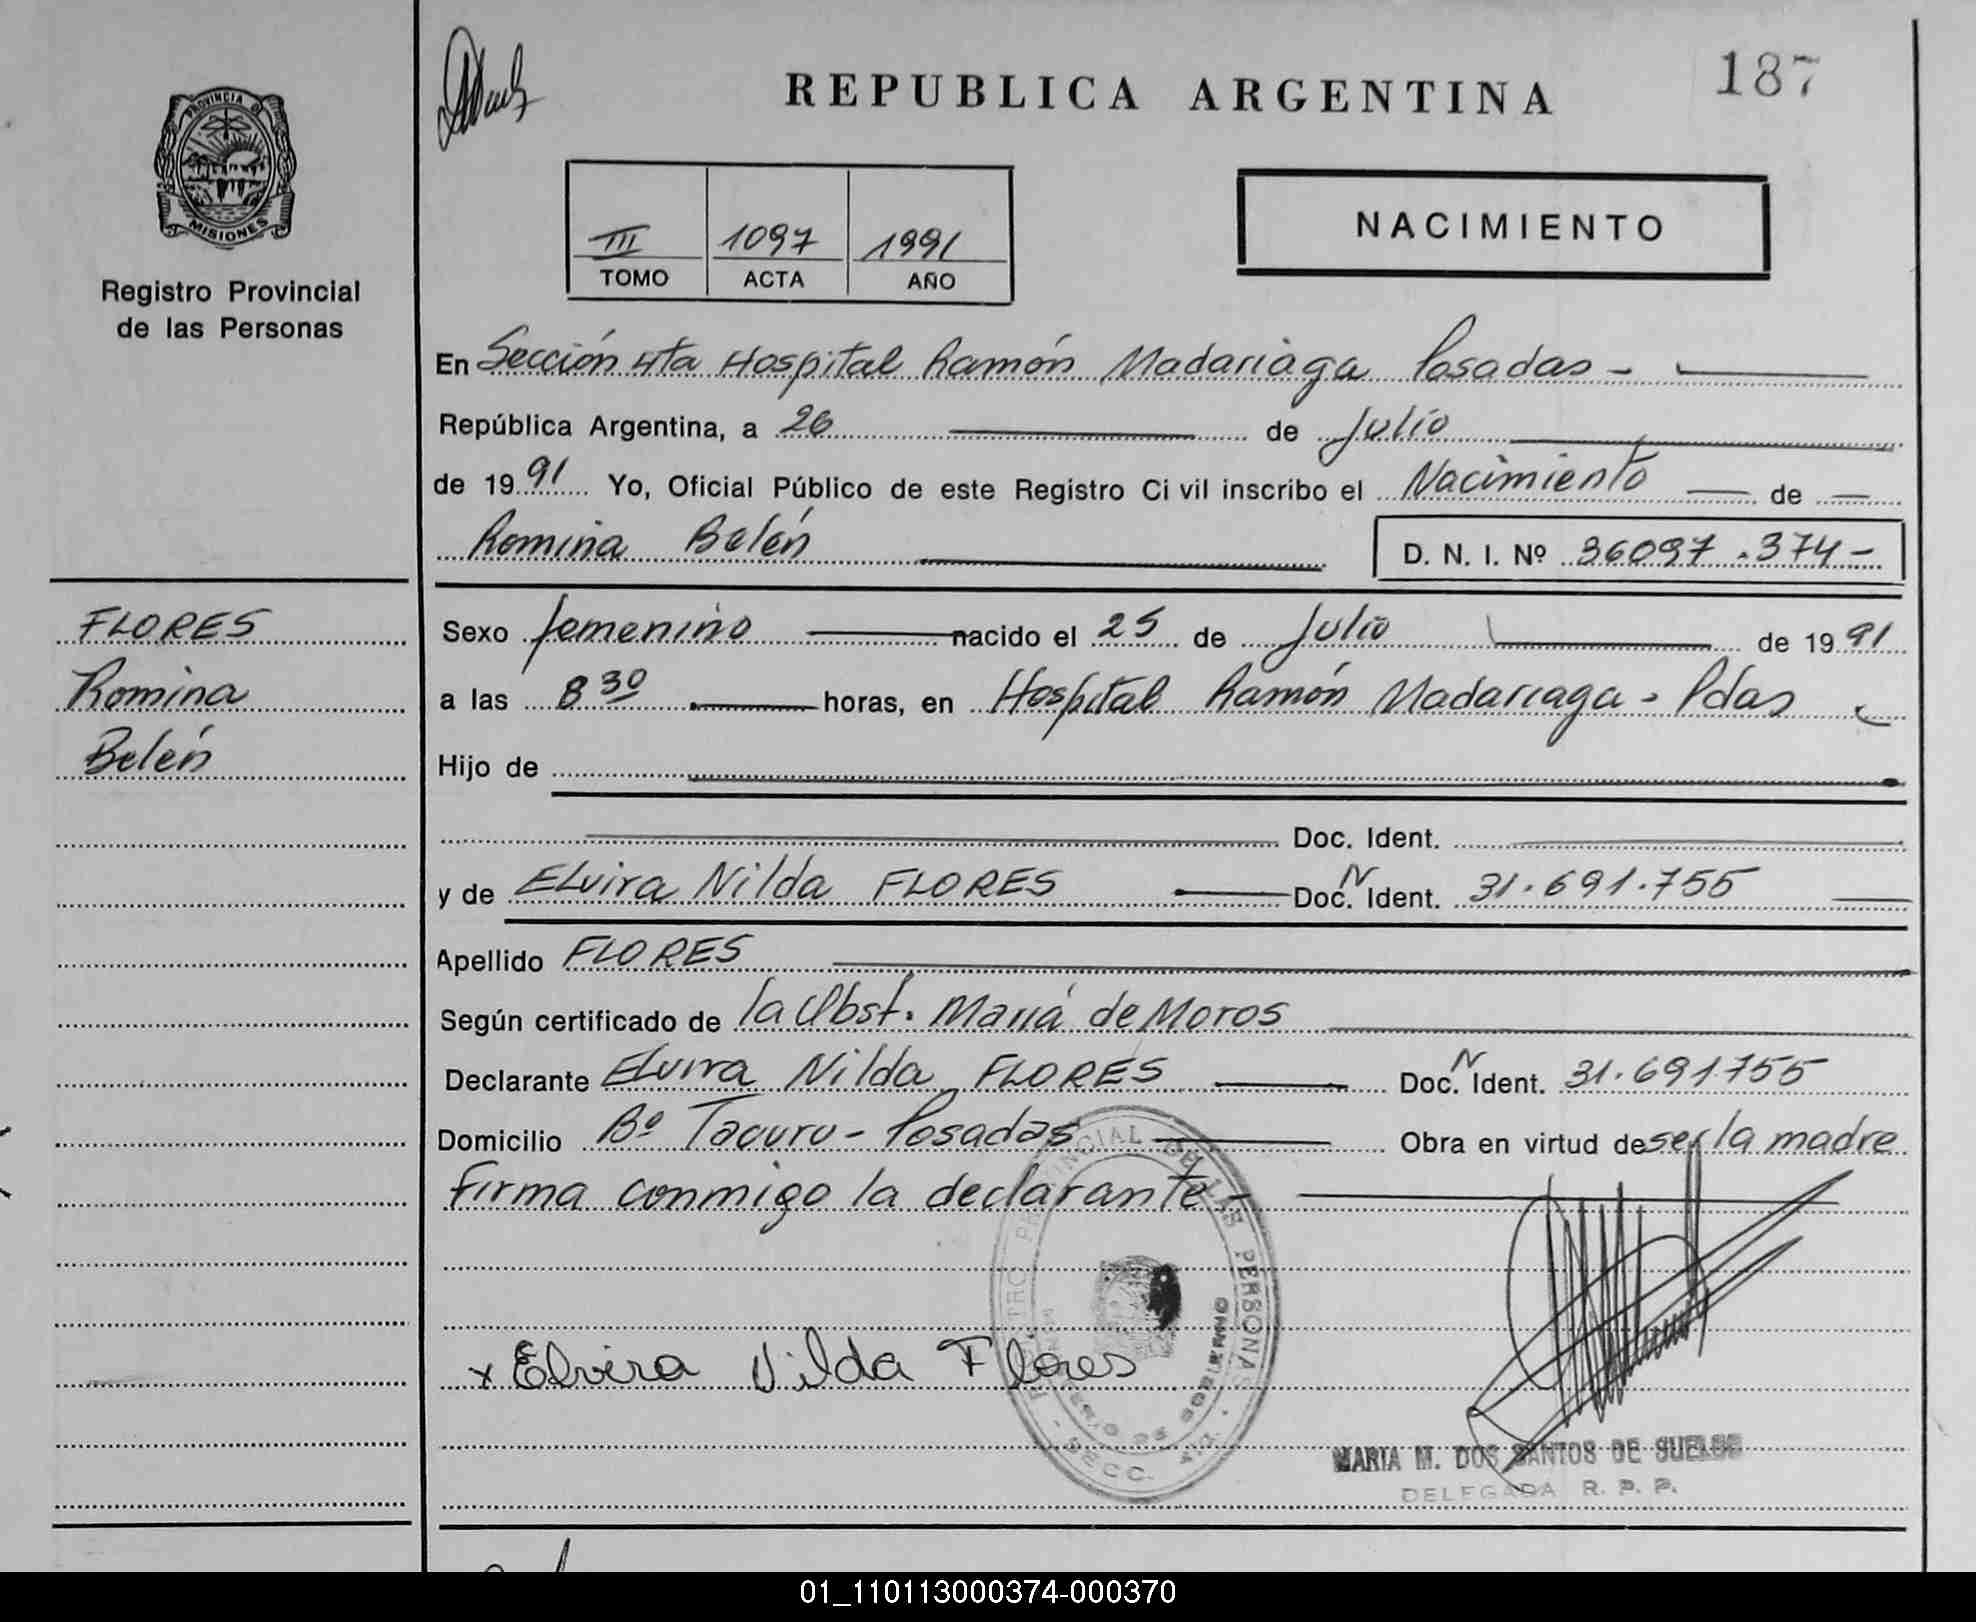 187
REPUBLICA ARGENTINA
PROVINCIA DE
MISIONES
Registro Provincial
de las Personas
III 1097 1991
TOMO ACTA AÑO
NACIMIENTO
En Sección 4ta Hospital Ramón Madariaga Posadas -
República Argentina, a 26 de Julio
de 1991 Yo, Oficial Público de este Registro Civil inscribo el Nacimiento de
Romina Belén D. N. I. Nº 36097.374-
FLORES
Romina
Belén
Sexo femenino nacido el 25 de Julio de 1991
a las 8 30 horas, en Hospital Ramón Madariaga - Pdas
Hijo de
Doc. Ident.
y de Elvira Nilda FLORES Doc. N Ident. 31.691.755
Apellido FLORES
Según certificado de la Obst. María de Moros
Declarante Elvira Nilda FLORES Doc. N Ident. 31.691.755
Domicilio Bº Tacuru - Posadas Obra en virtud de ser la madre
firma conmigo la declarante -
x Elvira Nilda Flores
PROVINCIAL DE LAS PERSONAS
GOBIERNO
SECC.
MARIA M. DOS SANTOS DE SUELDO
DELEGADA R. P. P.
01_110113000374-000370